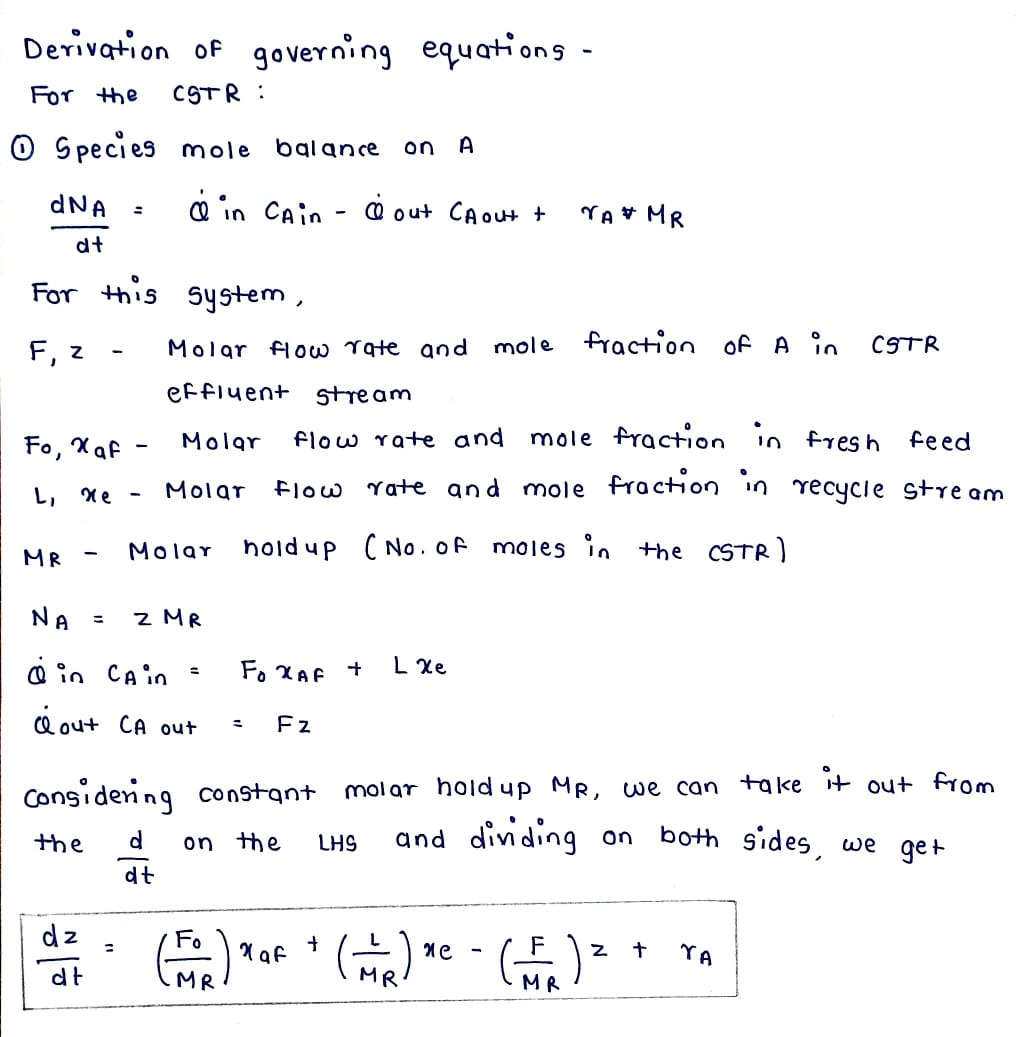 Derivation of governing equations -
For the CSTR :
① Species mole balance on A
dNA/dt = Q̇ in CAin - Q̇ out CAout + rA * MR
For this system,
F, z - Molar flow rate and mole fraction of A in CSTR
effluent stream
Fo, xaf - Molar flow rate and mole fraction in fresh feed
L, xe - Molar flow rate and mole fraction in recycle stream
MR - Molar holdup (No. of moles in the CSTR)
NA = z MR
Q̇ in CAin = Fo xAF + L xe
Q̇ out CA out = Fz
Considering constant molar holdup MR, we can take it out from
the d/dt on the LHS and dividing on both sides, we get
dz/dt = (Fo/MR) xaf + (L/MR) xe - (F/MR) z + rA